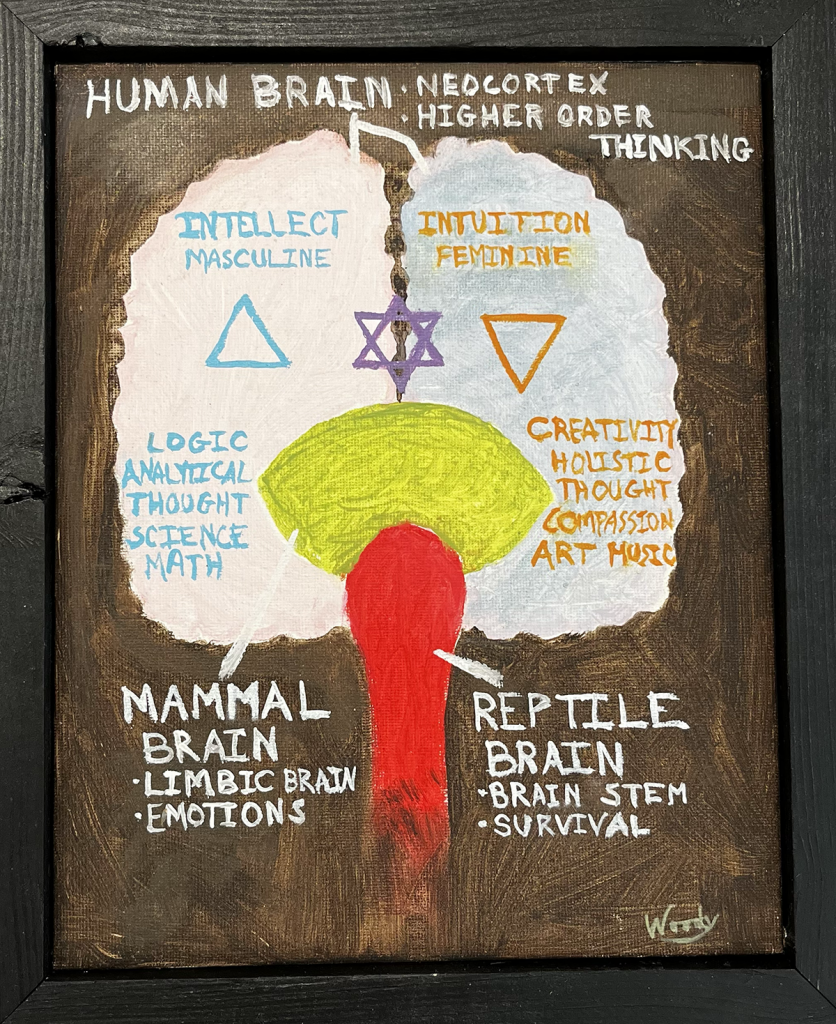 HUMAN BRAIN
• NEOCORTEX
• HIGHER ORDER
THINKING
INTELLECT
MASCULINE
INTUITION
FEMININE
LOGIC
ANALYTICAL
THOUGHT
SCIENCE
MATH
CREATIVITY
HOLISTIC
THOUGHT
COMPASSION
ART MUSIC
MAMMAL
BRAIN
• LIMBIC BRAIN
• EMOTIONS
REPTILE
BRAIN
• BRAIN STEM
• SURVIVAL
Woody